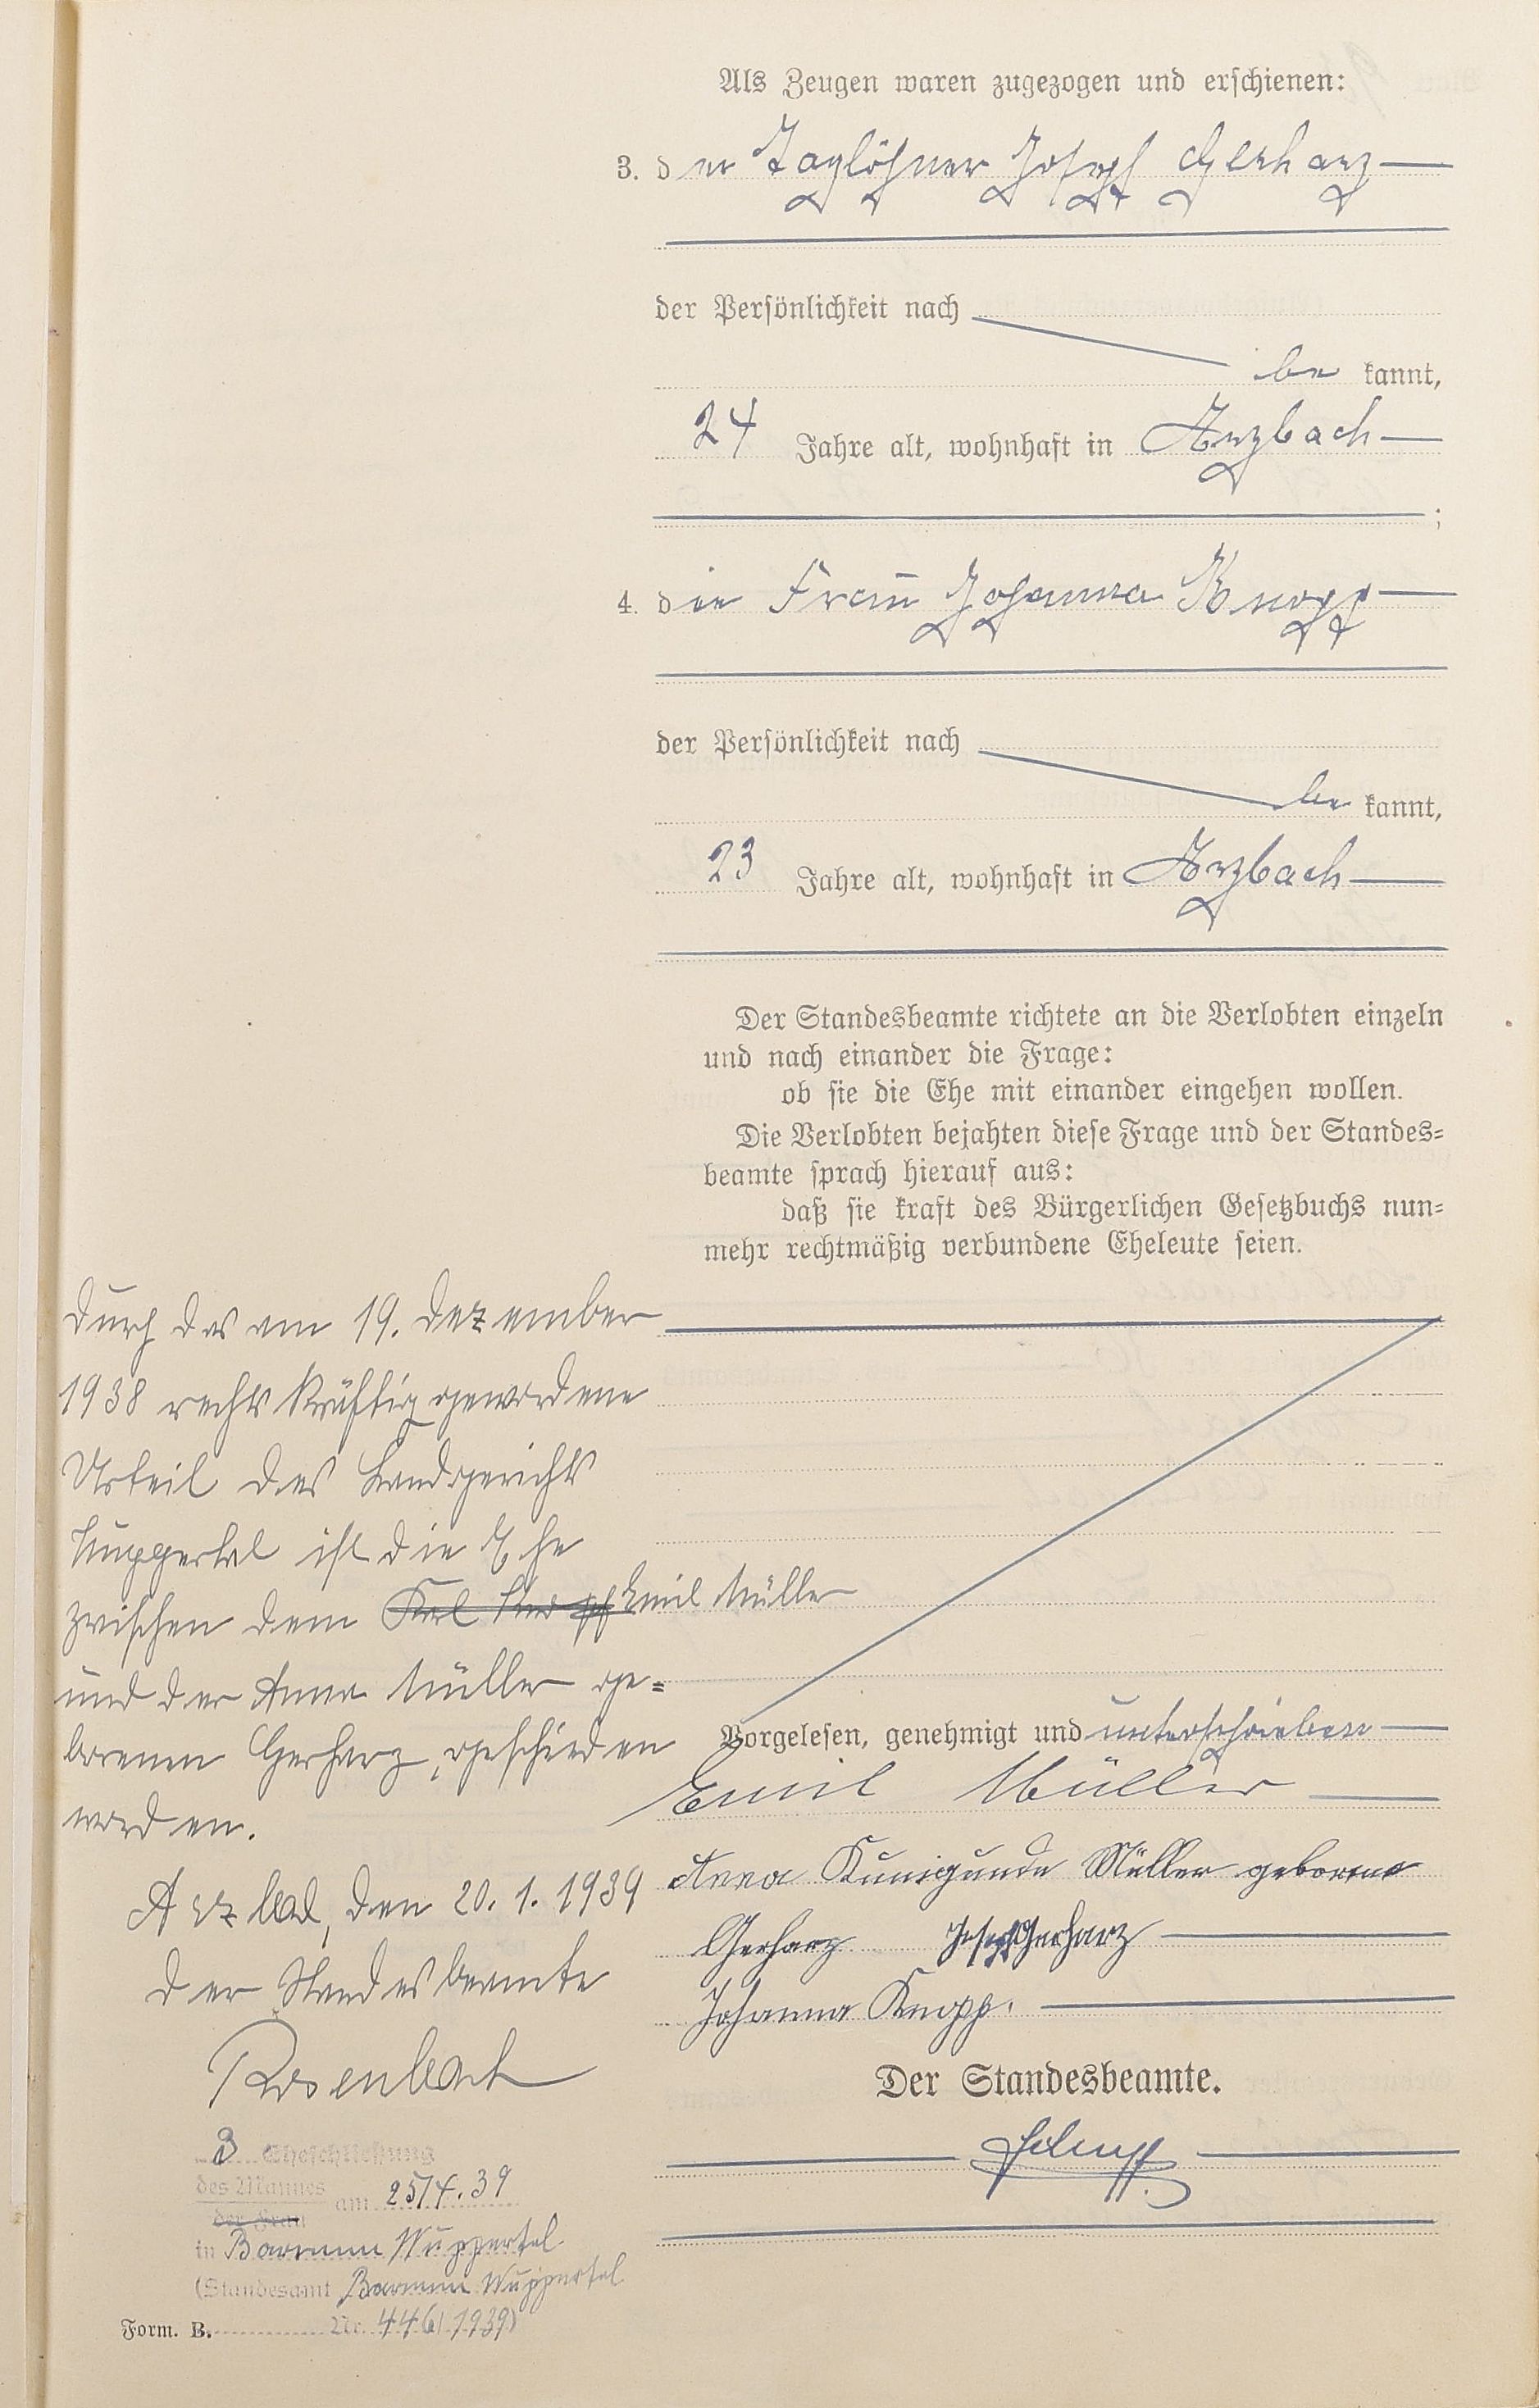 Als Zeugen waren zugezogen und erschienen:
3. der Taglöhner Joseph Gerharz
der Persönlichkeit nach
be kannt,
24 Jahre alt, wohnhaft in Arzbach
;
4. die Frau Johanna Knopp
der Persönlichkeit nach
be kannt,
23 Jahre alt, wohnhaft in Arzbach
Der Standesbeamte richtete an die Verlobten einzeln
und nach einander die Frage:
ob sie die Ehe mit einander eingehen wollen.
Die Verlobten bejahten diese Frage und der Standes=
beamte sprach hierauf aus:
daß sie kraft des Bürgerlichen Gesetzbuchs nun=
mehr rechtmäßig verbundene Eheleute seien.
Vorgelesen, genehmigt und unterschrieben
Emil Müller
Anna Kunigunde Müller geborene
Gerharz Joseph Gerharz
Johanna Knopp.
Der Standesbeamte.
Durch das am 19. Dezember
1938 rechtskräftig gewordene
Urteil des Landgerichts
Wuppertal ist die Ehe
zwischen dem Karl Emil Müller
und der Anna Müller ge=
borenen Gerharz, geschieden
worden.
Arzbach, den 20. 1. 1939
Der Standesbeamte
Rosenbach
3 Eheschliessung
des Mannes am 25/4.39
der Frau
in Barmen Wuppertal
(Standesamt Barmen Wuppertal
Nr. 446/1939)
Form. B.